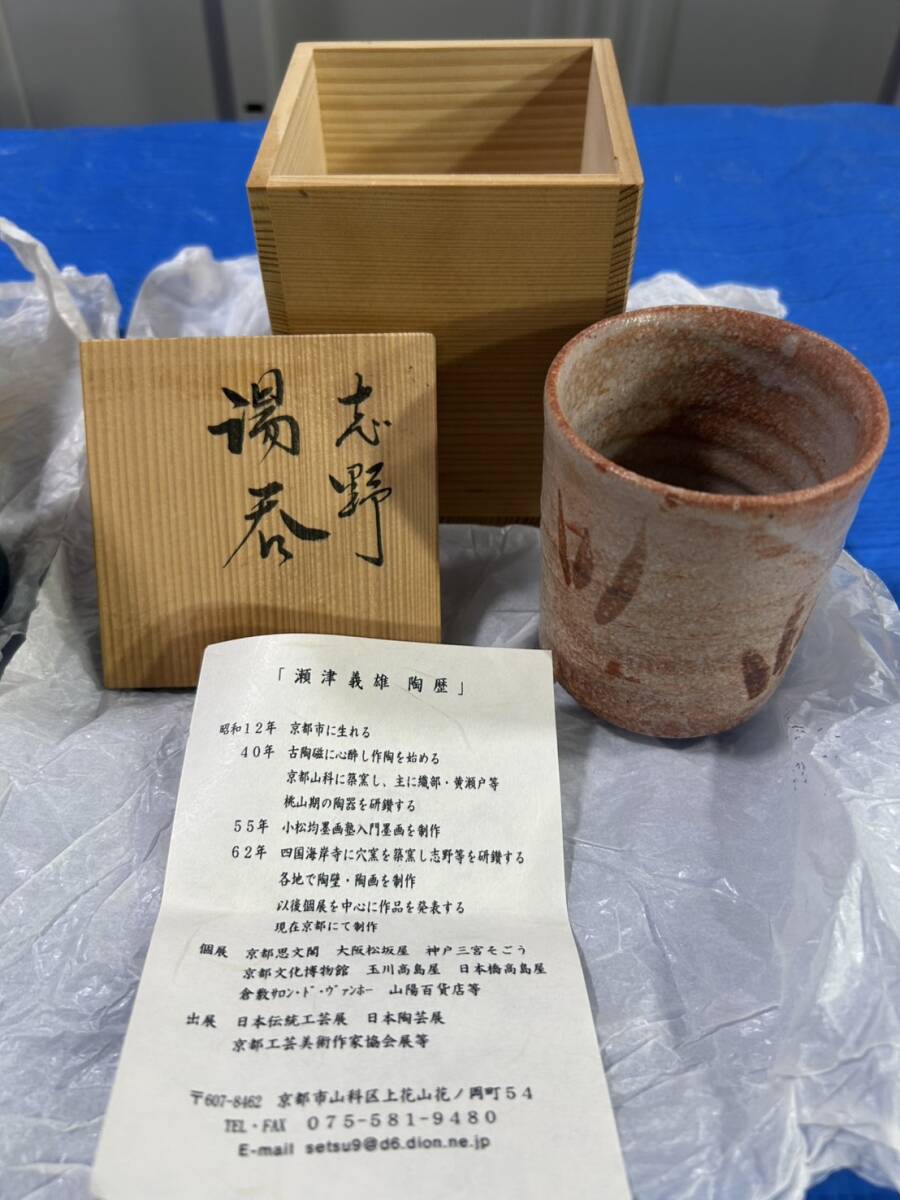 志野
湯呑
「瀬津義雄 陶歴」
昭和12年 京都市に生れる
40年 古陶磁に心酔し作陶を始める
京都山科に築窯し、主に織部・黄瀬戸等
桃山期の陶器を研鑽する
55年 小松均墨画塾入門墨画を制作
62年 四国海岸寺に穴窯を築窯し志野等を研鑽する
各地で陶壁・陶画を制作
以後個展を中心に作品を発表する
現在京都にて制作
個展 京都思文閣 大阪松坂屋 神戸三宮そごう
京都文化博物館 玉川高島屋 日本橋高島屋
倉敷ｻﾛﾝ･ﾄﾞ･ｳﾞｧﾝﾎｰ 山陽百貨店等
出展 日本伝統工芸展 日本陶芸展
京都工芸美術作家協会展等
〒607-8462 京都市山科区上花山花ノ岡町54
TEL・FAX 075-581-9480
E-mail setsu9@d6.dion.ne.jp